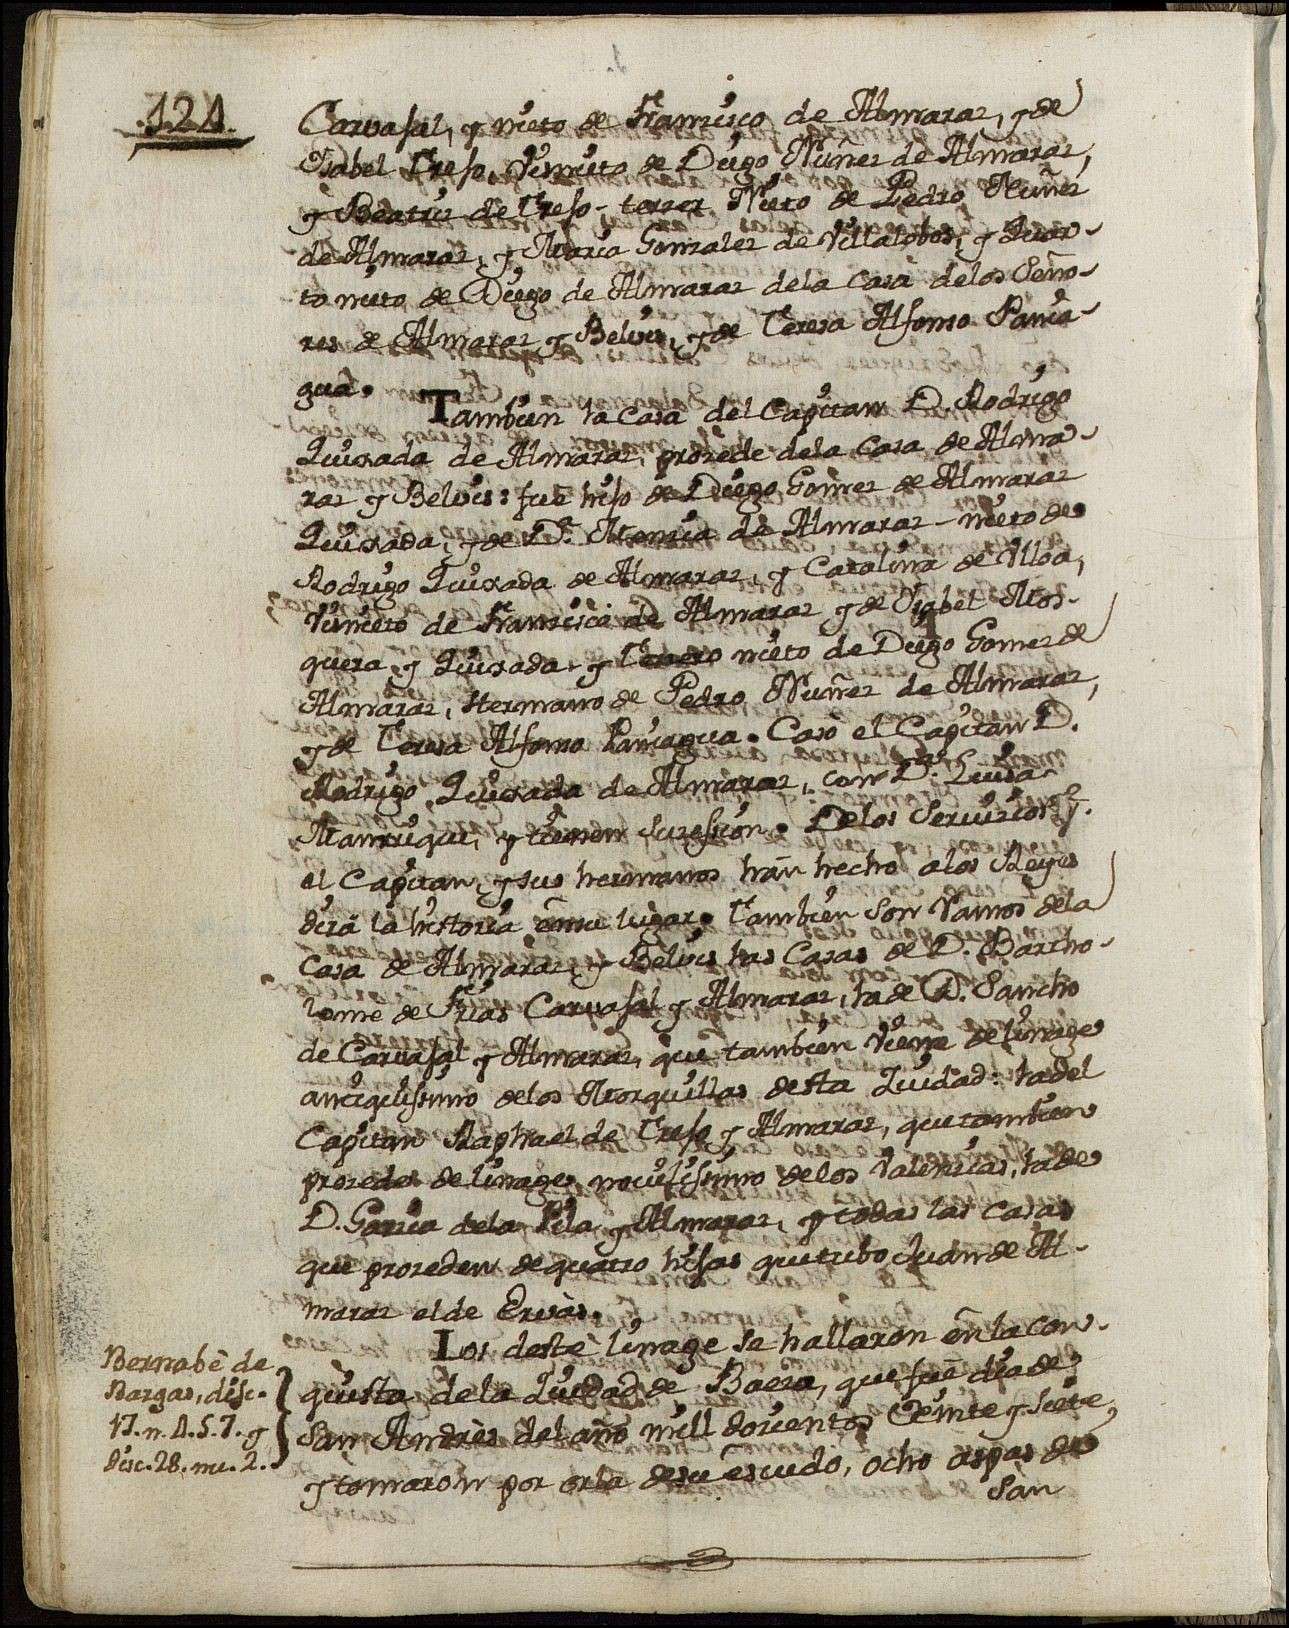 .121.
Carvajal, y nieto de Francisco de Almaraz, y de
Isabel Trejo, Visnieto de Diego Nuñez de Almaraz,
y Beatriz de Trejo - tercer Nieto de Pedro Nuñez
de Almaraz, y Maria Gonzalez de Villalobos, y Quar-
to nieto de Diego de Almaraz dela Casa delos Seño-
res de Almaraz y Belvis, y de Teresa Alfonso Pania-
gua.
Tambien la Casa del Capitan D. Rodrigo
Quixada de Almaraz, prozede dela Casa de Alma-
raz y Belvis: fue hijo de Diego Gomez de Almaraz
Quixada, y de D.ª Mencia de Almaraz - nieto de
Rodrigo Quixada de Almaraz, y Catalina de Ulloa,
Visnieto de Francisco de Almaraz y de Isabel Mos-
quera y Quixada y Tercero nieto de Diego Gomez de
Almaraz, Hermano de Pedro Nuñez de Almaraz,
y de Teresa Alfonso Paniagua. Casò el Capitan D.
Rodrigo Quixada de Almaraz, con D.ª Luisa
Manrique, y tienen suzesion. Delos Servicios q.
el Capitan, y sus hermanos hàn hecho alos Reyes
dirà la historia ensu lugar. Tambien son Ramos dela
Casa de Almaraz, y Belvis las Casas de D. Bartho-
lome de Frias Carvajal y Almaraz, la de D. Sancho
de Carvajal y Almaraz, que tambien viene de linage
antiquisimo delos Morquillas desta Ziudad: la del
Capitan Raphael de Trejo y Almaraz, que tambien
prozede de linage novilisimo delos Valencias, la de
D. Garcia dela Pila y Almaraz, y todas las Casas
que prozeden de quatro hijas que tubo Juan de Al-
maraz el de Ervàs.
Los deste linage se hallaron en la con-
quista de la Ziudad de Baeza, que fue dia de
San Andrès del año mill docientos Veinte y siete,
y tomaron por orla desu escudo, ocho aspas de
San
Bernabè de
Bargas, disc.
17. n. 4. 5. 7. y
disc. 28. nu. 2.